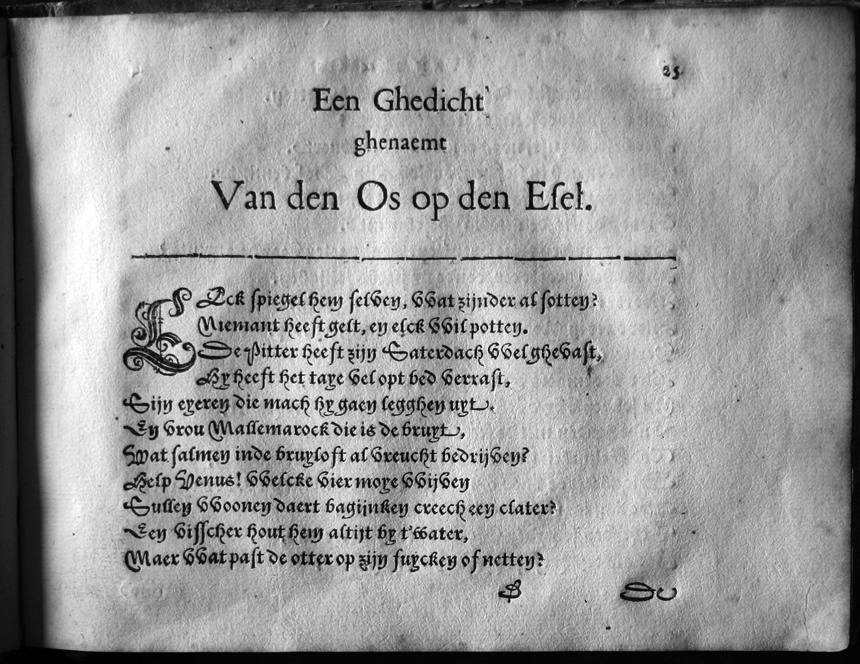 25
Een Ghedicht
ghenaemt
Van den Os op den Esel.
ELck spiegel hem selven, wat zijnder al sotten?
Niemant heeft gelt, en elck wil potten.
De Pitter heeft zijn Saterdach wel ghevast,
Hy heeft het taye vel opt bed verrast,
Sijn eyeren die mach hy gaen legghen uyt.
En vrou Mallemarock die is de bruyt,
Wat salmen inde bruyloft al vreucht bedrijven?
Help Venus! welcke vier moye wijven
Sullen woonen daert bagijnken creech een clater?
Een visscher hout hem altijt by t'water,
Maer wat past de otter op zijn fuycken of netten?
B De